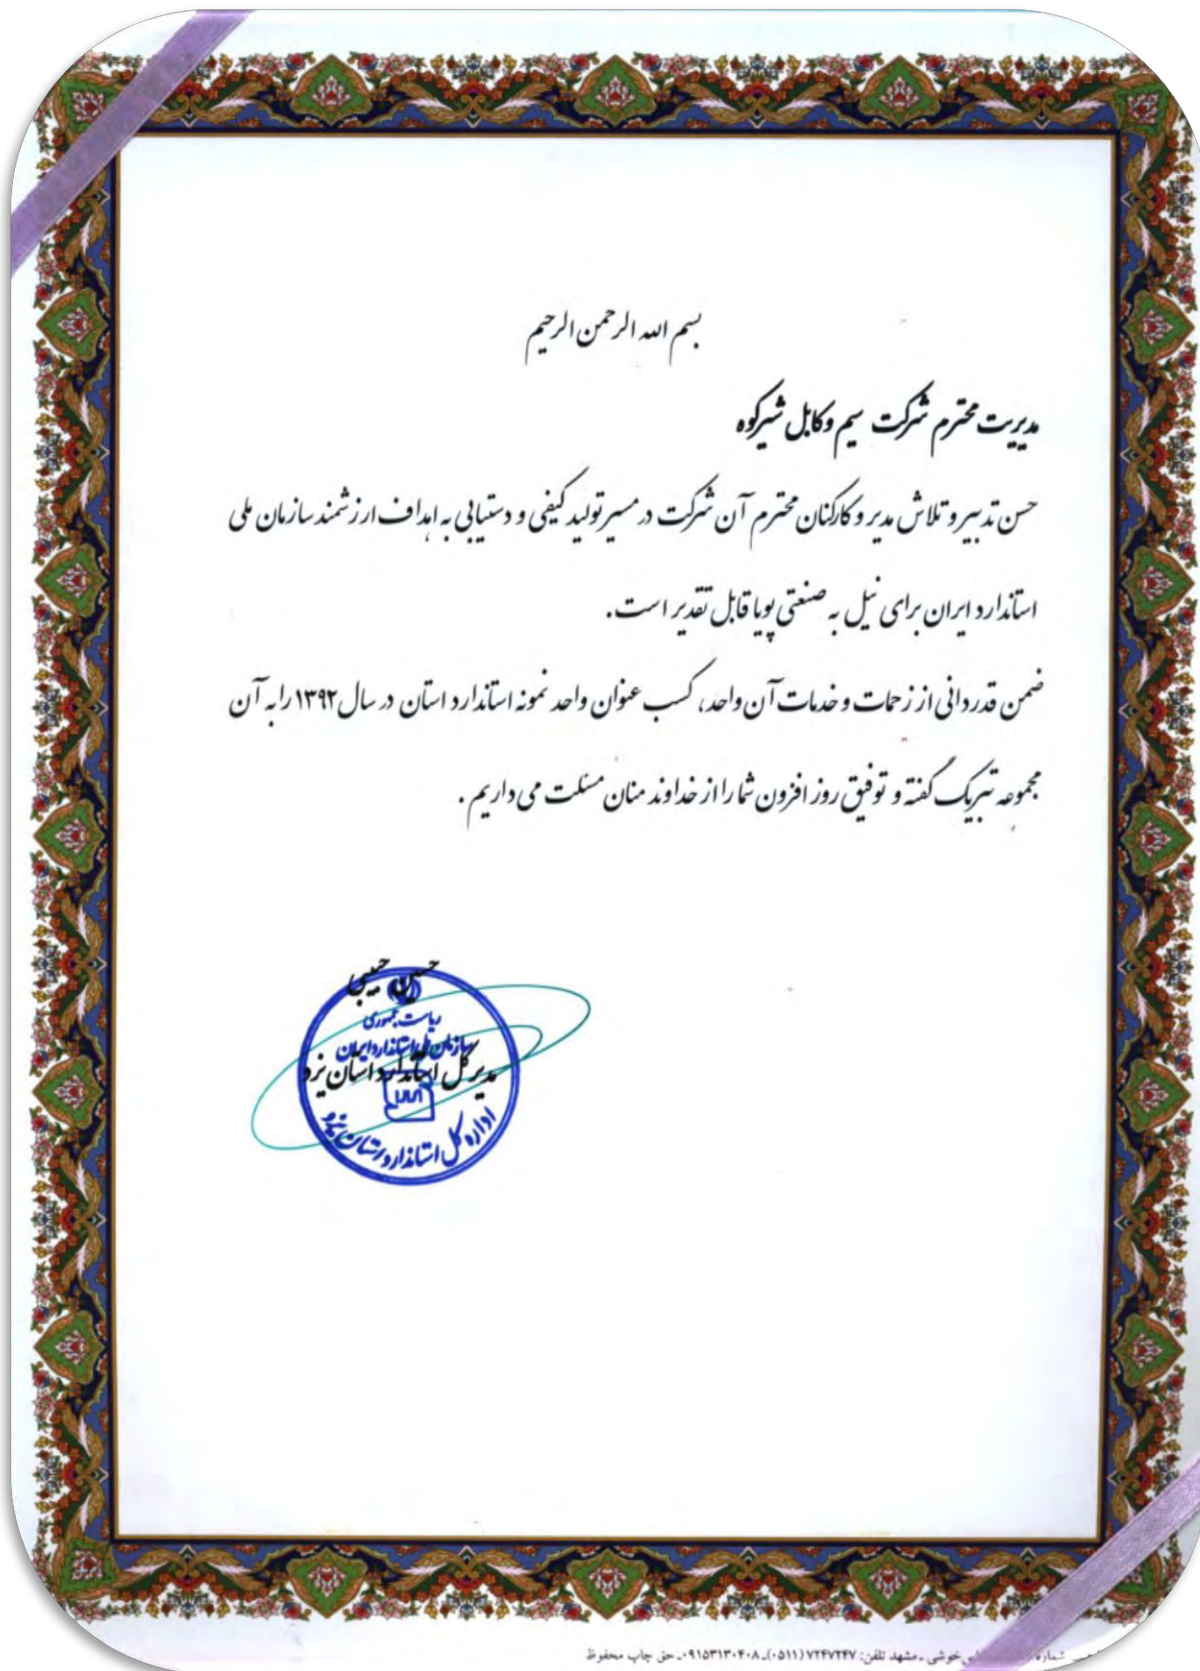 بسم الله الرحمن الرحیم
مدیریت محترم شرکت سیم وکابل شیرکوه
حسن تدبیر و تلاش مدیر و کارکنان محترم آن شرکت در مسیر تولید کیفی و دستیابی به اهداف ارزشمند سازمان ملی
استاندارد ایران برای نیل به صنعتی پویا قابل تقدیر است.
ضمن قدردانی از زحمات و خدمات آن واحد، کسب عنوان واحد نمونه استاندارد استان در سال ۱۳۹۲ را به آن
مجموعه تبریک گفته و توفیق روز افزون شما را از خداوند منان مسئلت می داریم .
حسین حبیبی
ریاست جمهوری
سازمان ملی استاندارد ایران
مدیر کل استاندارد استان یزد
اداره کل استاندارد استان یزد
شماره خوشی ـ مشهد تلفن: ۷۲۴۷۲۴۷ (۰۵۱۱)ـ ۰۹۱۵۳۱۳۰۴۰۸ـ حق چاپ محفوظ